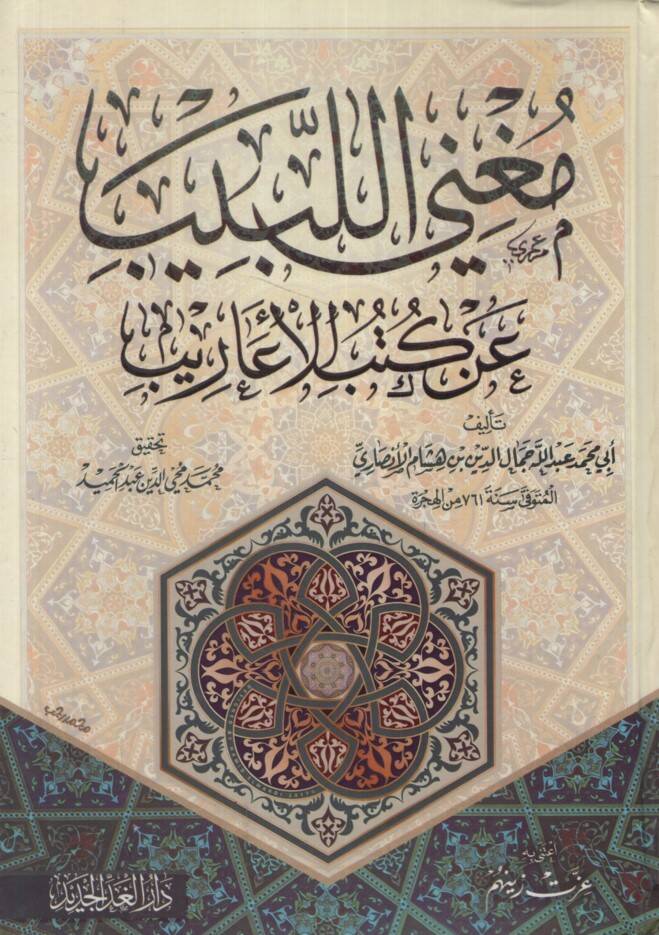 مُغْنِي اللَّبِيبِ
عَنْ كُتُبِ الأَعَارِيبِ
تأليف
أبي محمد عبد الله جمال الدين بن هشام الأنصاري
المتوفى سنة ٧٦١ من الهجرة
تحقيق
محمد محيي الدين عبد الحميد
اعتنى به
عزت زينهم
دار الغد الجديد